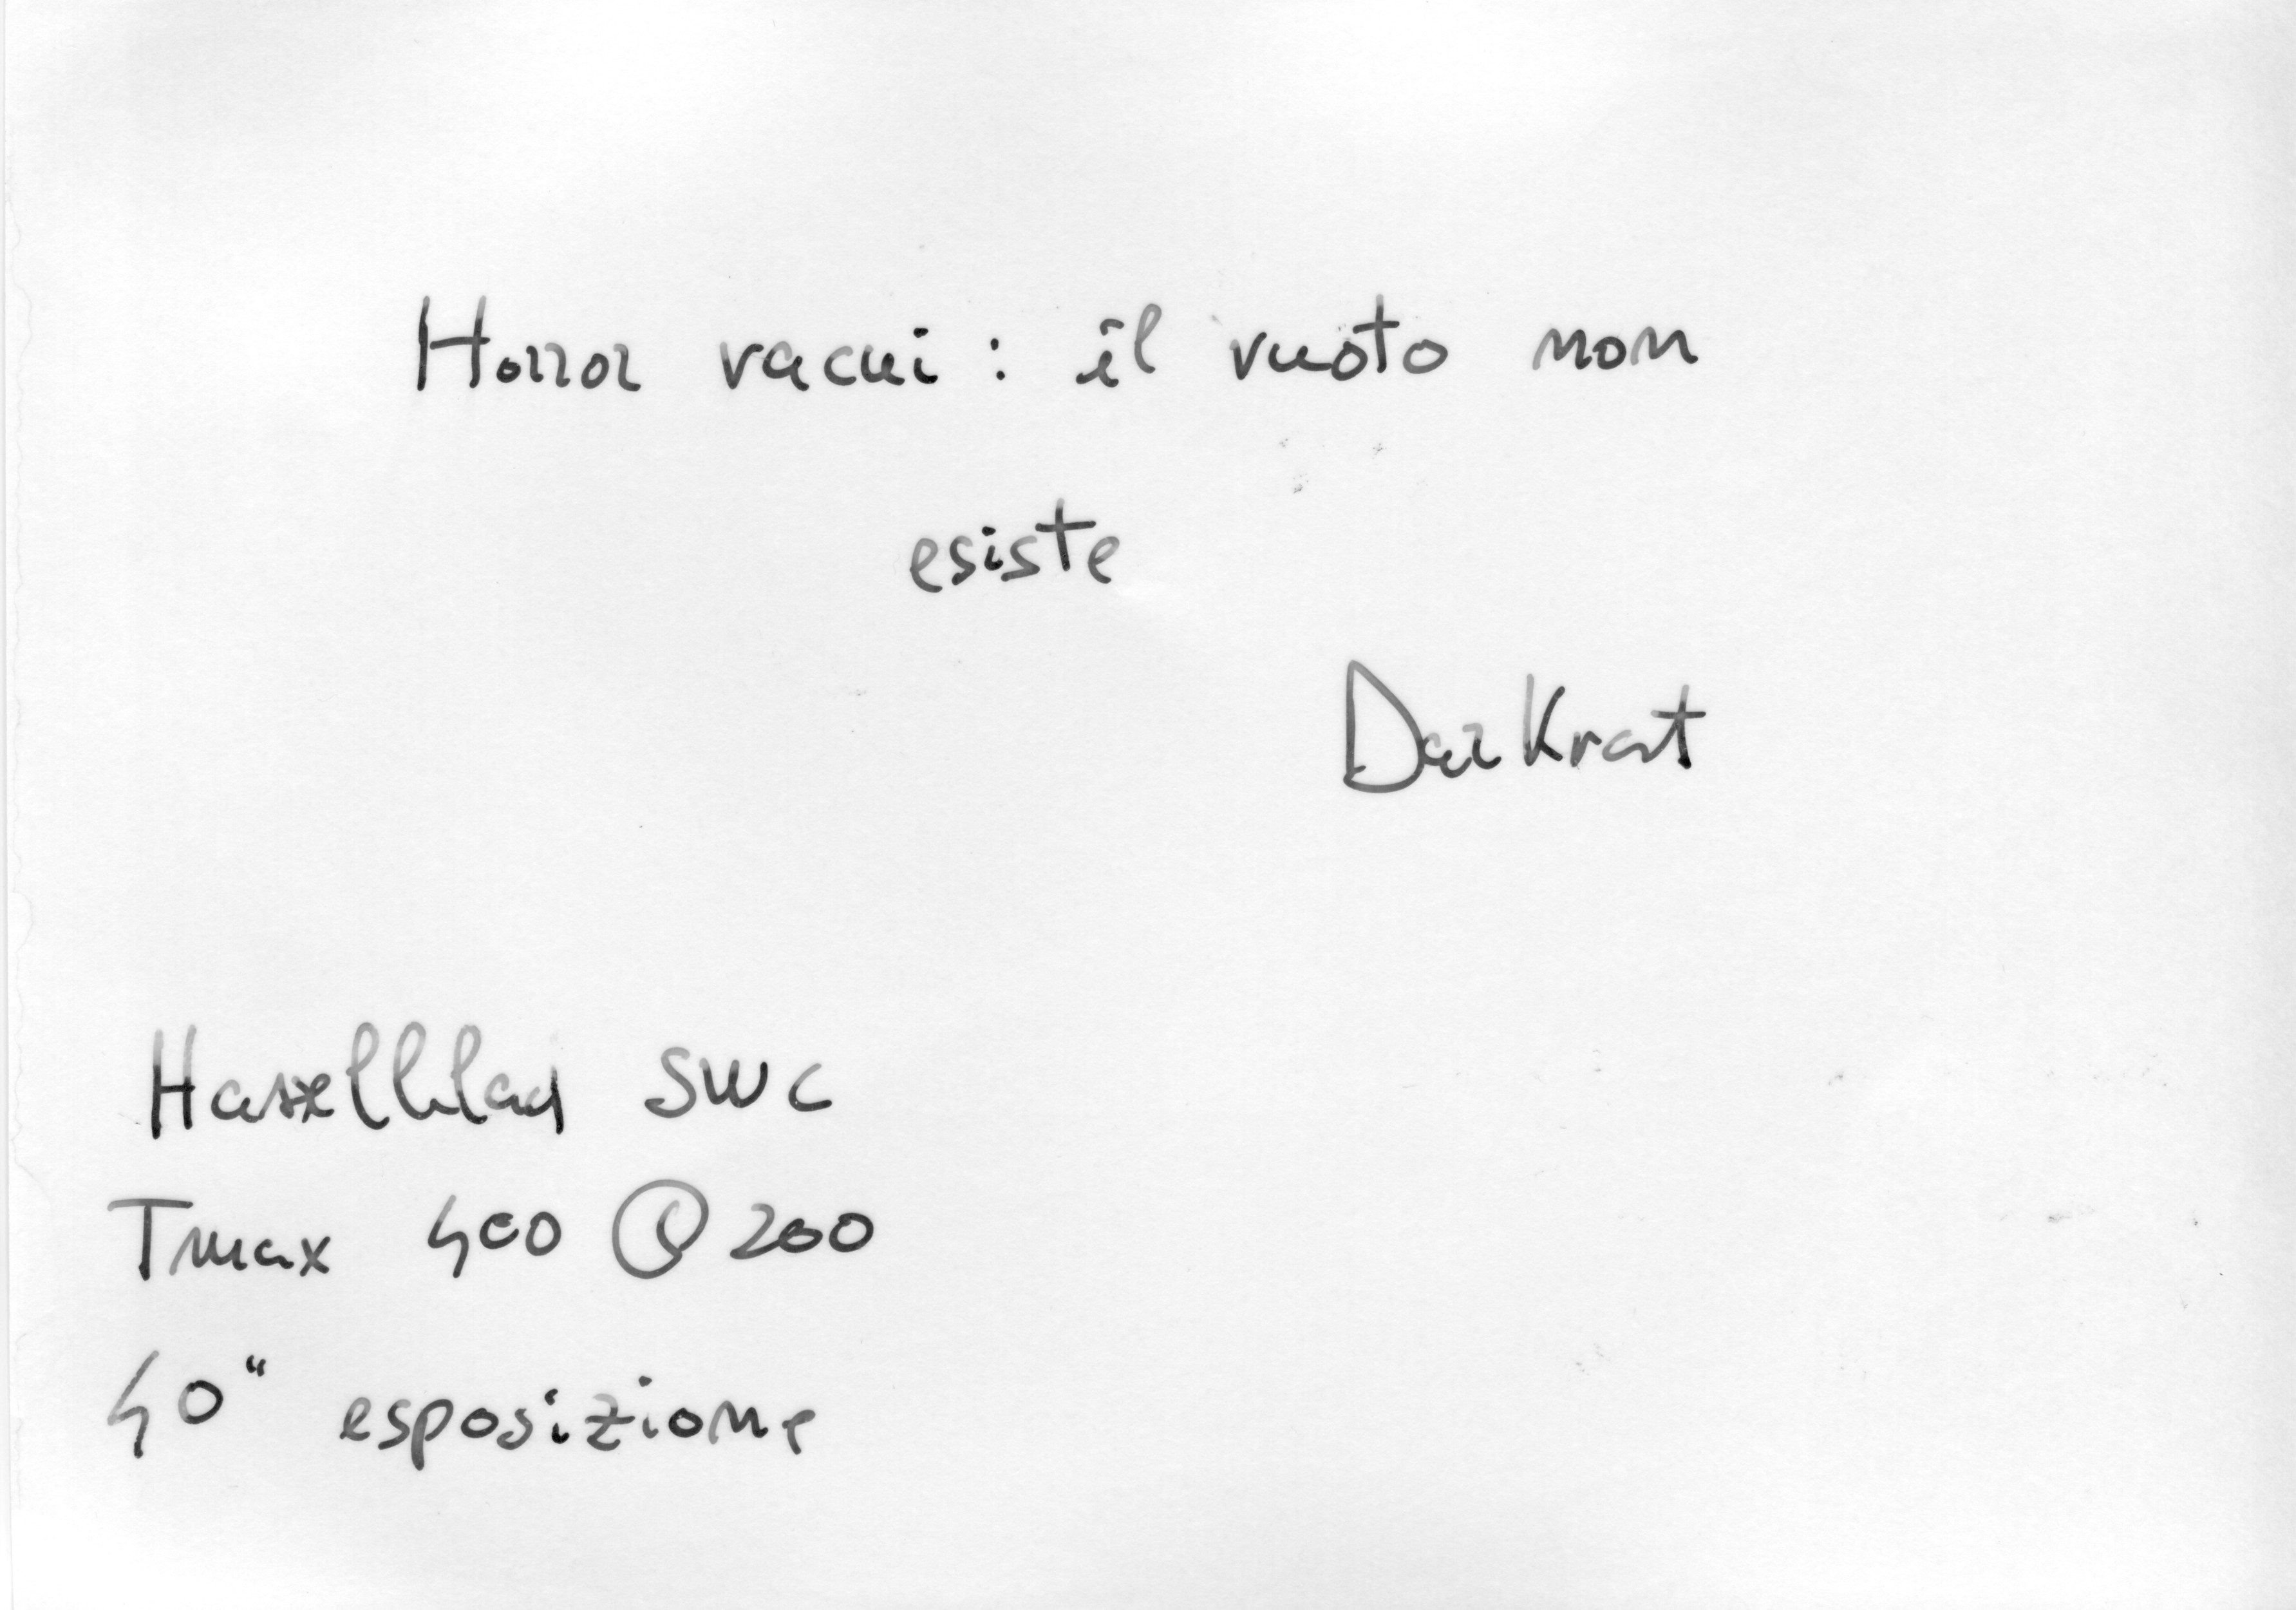 Horror vacui: il vuoto non
esiste
DarKrat
Hasselblad SWC
Tmax 400 @ 200
40" esposizione